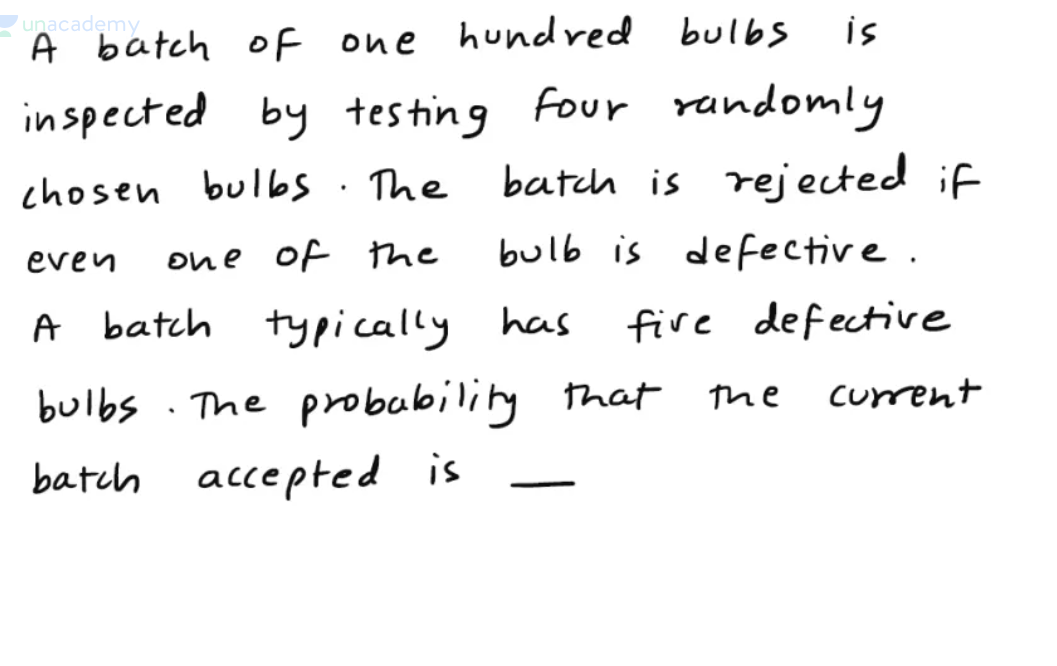 unacademy
A batch of one hundred bulbs is
inspected by testing four randomly
chosen bulbs. The batch is rejected if
even one of the bulb is defective.
A batch typically has five defective
bulbs. The probability that the current
batch accepted is __